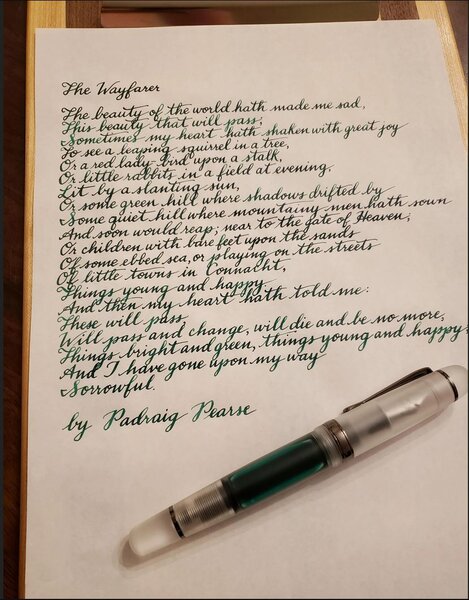 The Wayfarer
The beauty of the world hath made me sad,
This beauty that will pass;
Sometimes my heart hath shaken with great joy
To see a leaping squirrel in a tree,
Or a red lady-bird upon a stalk,
Or little rabbits in a field at evening,
Lit by a slanting sun,
Or some green hill where shadows drifted by
Some quiet hill where mountainy men hath sown
And soon would reap; near to the gate of Heaven;
Or children with bare feet upon the sands
Of some ebbed sea, or playing on the streets
Of little towns in Connacht,
Things young and happy.
And then my heart hath told me:
These will pass,
Will pass and change, will die and be no more,
Things bright and green, things young and happy;
And I have gone upon my way
Sorrowful.
by Padraig Pearse